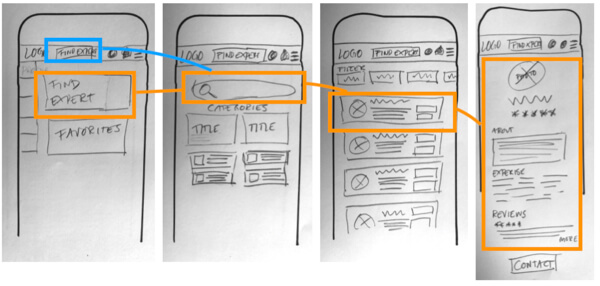 LOGO FIND EXPERT
FIND
EXPERT
FAVORITES
LOGO FIND EXPERT
CATEGORIES
TITLE TITLE
LOGO FIND EXPERT
FILTER
LOGO FIND EXPERT
PHOTO
ABOUT
EXTERISE
REVIEWS
MORE
CONTACT